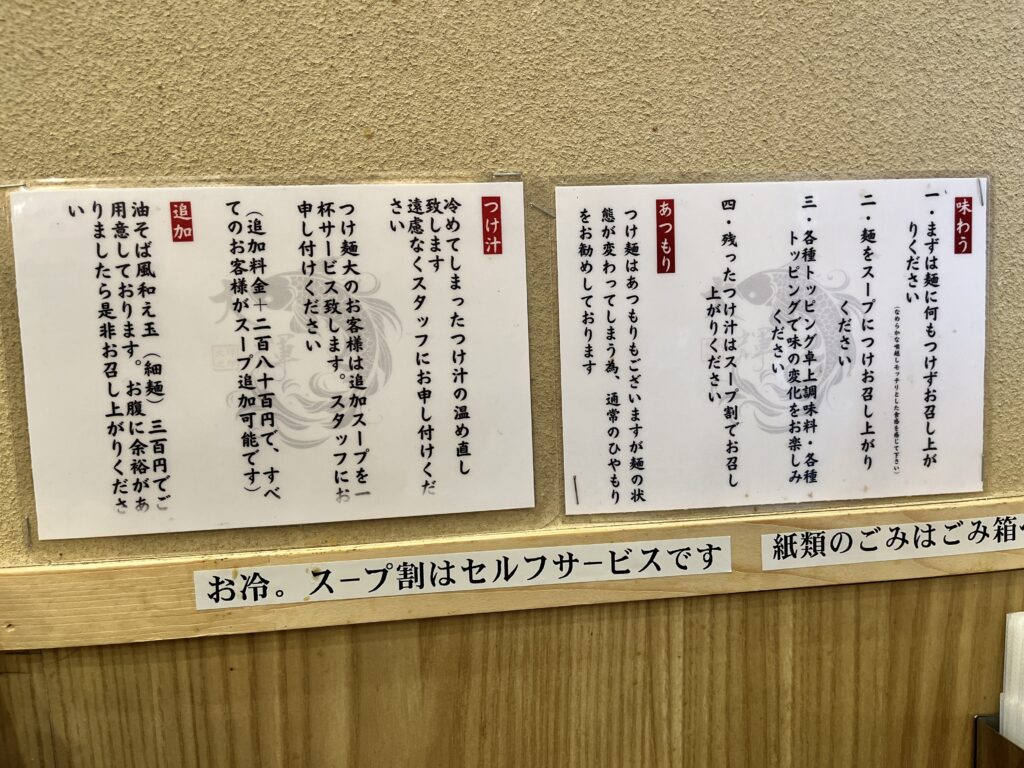 味わう
一・まずは麺に何もつけずお召し上が
りください
（なめらかな喉越しモッチリとした食感を感じて下さい）
二・麺をスープにつけお召し上がり
ください
三・各種トッピング卓上調味料・各種
トッピングで味の変化をお楽しみ
ください
四・残ったつけ汁はスープ割でお召し
上がりください
あつもり
つけ麺はあつもりもございますが麺の状
態が変わってしまう為、通常のひやもり
をお勧めしております
つけ汁
冷めてしまったつけ汁の温め直し
致します
遠慮なくスタッフにお申し付けくだ
さい
つけ麺大のお客様は追加スープを一
杯サービス致します。スタッフにお
申し付けください
（追加料金＋二百八十百円で、すべ
てのお客様がスープ追加可能です）
追加
油そば風和え玉　（細麺）三百円でご
用意しております。お腹に余裕があ
りましたら是非お召し上がりくださ
い
お冷。スープ割はセルフサービスです
紙類のごみはごみ箱